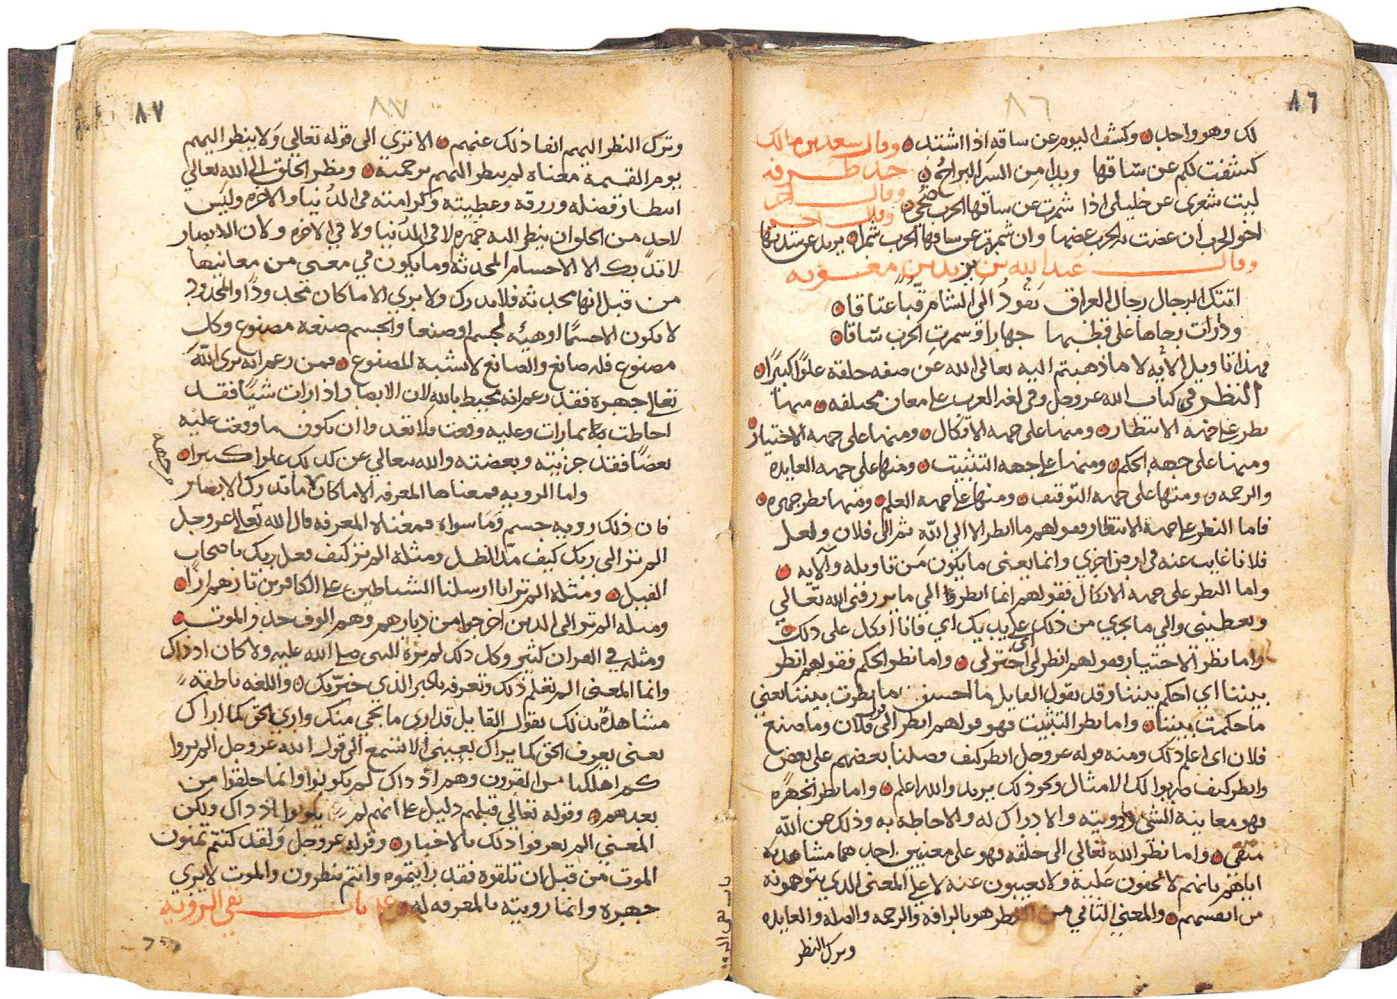 ٨٦
٨٦
لك وهو واحد وكشف اليوم عن ساقه اذا اشتد وقال سعد بن مالك
كشفت لكم عن ساقها وبدا من الشر البراح جد طرفه
وقال اخر
ليت شعري عن خليلي اذا شمرت عن ساقها الحرب
وقال اخر
اخو الحرب ان عضت به الحرب عضها وان شمرت عن ساقها الحرب شمرا يريد عن شدتها
وقال عبد الله بن يزيد بن معويه
اتتك الرجال رجال العراق تقود الى الشام قبا عتاقا
ودارت رحاها على قطبها جهارا وشمرت الحرب ساقا
فهذا تاويل الآيه لا ما ذهبتم اليه تعالى الله عن صفه خلقه علوا كبيرا
النظر في كتاب الله عز وجل وفي لغه العرب على معان مختلفه منها
نظر على جهة الانتظار ومنها على جهه الاتكال ومنها على جهه الاختيار
ومنها على جهه الحكم ومنها على جهه التثبيت ومنها على جهه العايده
والرحمه ومنها على جهه التوقيف ومنها على جهه العلم ومنها نظر جهره
فاما النظر على جهة الانتظار فقولهم ما انظر الا الى الله ثم الى فلان ولعل
فلانا غايب عنه في ارض اخرى وانما يعني ما يكون من تاويله وآلايه
واما النظر على جهه الاتكال فقولهم انما انظر الى ما يرزقني الله تعالى
ويعطيني والى ما يجري من ذلك على يديك اي فانا اتكل على ذلك
واما نظر الاختيار فقولهم انظر لي اي اختر لي واما نظر الحكم فقولهم انظر
بيننا اي احكم بيننا وقد يقول القايل ما احسن ما نظرت بيننا يعني
ما حكمت بيننا واما نظر التثبيت فهو قولهم انظر الى فلان وما صنع
فلان اي اعلم ذلك ومنه قوله عز وجل انظر كيف فضلنا بعضهم على بعض
وانظر كيف ضربوا لك الامثال ونحو ذلك يريد والله اعلم واما نظر الجهره
فهو معاينة الشي ورويته والادراك له والاحاطه به وذلك عن الله
منفي واما نظر الله تعالى الى خلقه فهو على معنيين احدهما مشاهدته
اياهم بانهم لا يخفون عليه ولا يغيبون عنه لا على المعنى الذي يتوهمونه
من انفسهم والمعنى الثاني من النظر هو بالرافه والرحمه والصله والعايده
وترك النظر
٨٧
٨٧
وترك النظر اليهم انفاذ ذلك عنهم الا ترى الى قوله تعالى ولا ينظر اليهم
يوم القيمة معناه لم ينظر اليهم برحمته ونظر الخلق الى الله تعالى
انتظار فضله ورزقه وعطيته وكرامته في الدنيا والاخره وليس
لاحد من الخلق ان ينظر اليه جهره لا في الدنيا ولا في الاخره ولان الابصار
لا تدرك الا الاجسام المحدثة وما يكون في معنى من معانيها
من قبل انها محدثه فلا تدرك ولا ترى الا ما كان محدودا والمحدود
لا يكون الا جسما او هيئه لجسم او صنعا والجسم صنعه مصنوع وكل
مصنوع فله صانع والصانع لا يشبه المصنوع فمن زعم انه يرى الله
تعالى جهره فقد زعم انه محيط بالله لان الابصار اذا رات شيا فقد
احاطت به بما رات وعليه وقعت فلا تعد واان يكون ما وقعت عليه
بعضا فقد جزيته وبعضته والله تعالى عن كل ذلك علوا كبيرا
واما الرويه فمعناها المعرفه الا ما كان مما تدرك الابصار
فان ذلك رويه جسم وما سواه فمعناه المعرفه قال الله تعالى عز وجل
الم تر الى ربك كيف مد الظل ومثله الم تر كيف فعل ربك باصحاب
الفيل ومثله الم تر انا ارسلنا الشياطين على الكافرين تازهم ازا
ومثله الم تر الى الذين اخرجوا من ديارهم وهم الوف حذر الموت
ومثله في القران كثير وكل ذلك لم يره النبي صلى الله عليه ولا كان اذ ذاك
وانما المعنى الم تعلم ذلك وتعرفه بالخبر الذي خبرتك واللغه ناطقة
مشاهدة بذلك يقول القايل قد ارى ما نجى منك وارى الحق كما اراك
يعني يعرف الحق كما يراك بعينى الا تسمع الى قول الله عز وجل الم يروا
كم اهلكنا من القرون وهم اذ ذاك لم يكونوا وانما خلقوا من
بعدهم وقوله تعالى قبلهم دليل على انهم لم يكونوا اذ ذاك ولكن
المعنى الم يعرفوا ذلك بالاخبار وقوله عز وجل ولقد كنتم تمنون
الموت من قبل ان تلقوه فقد رايتموه وانتم تنظرون والموت لا يرى
جهره وانما رويته بالمعرفه له باب نفي الرؤيه